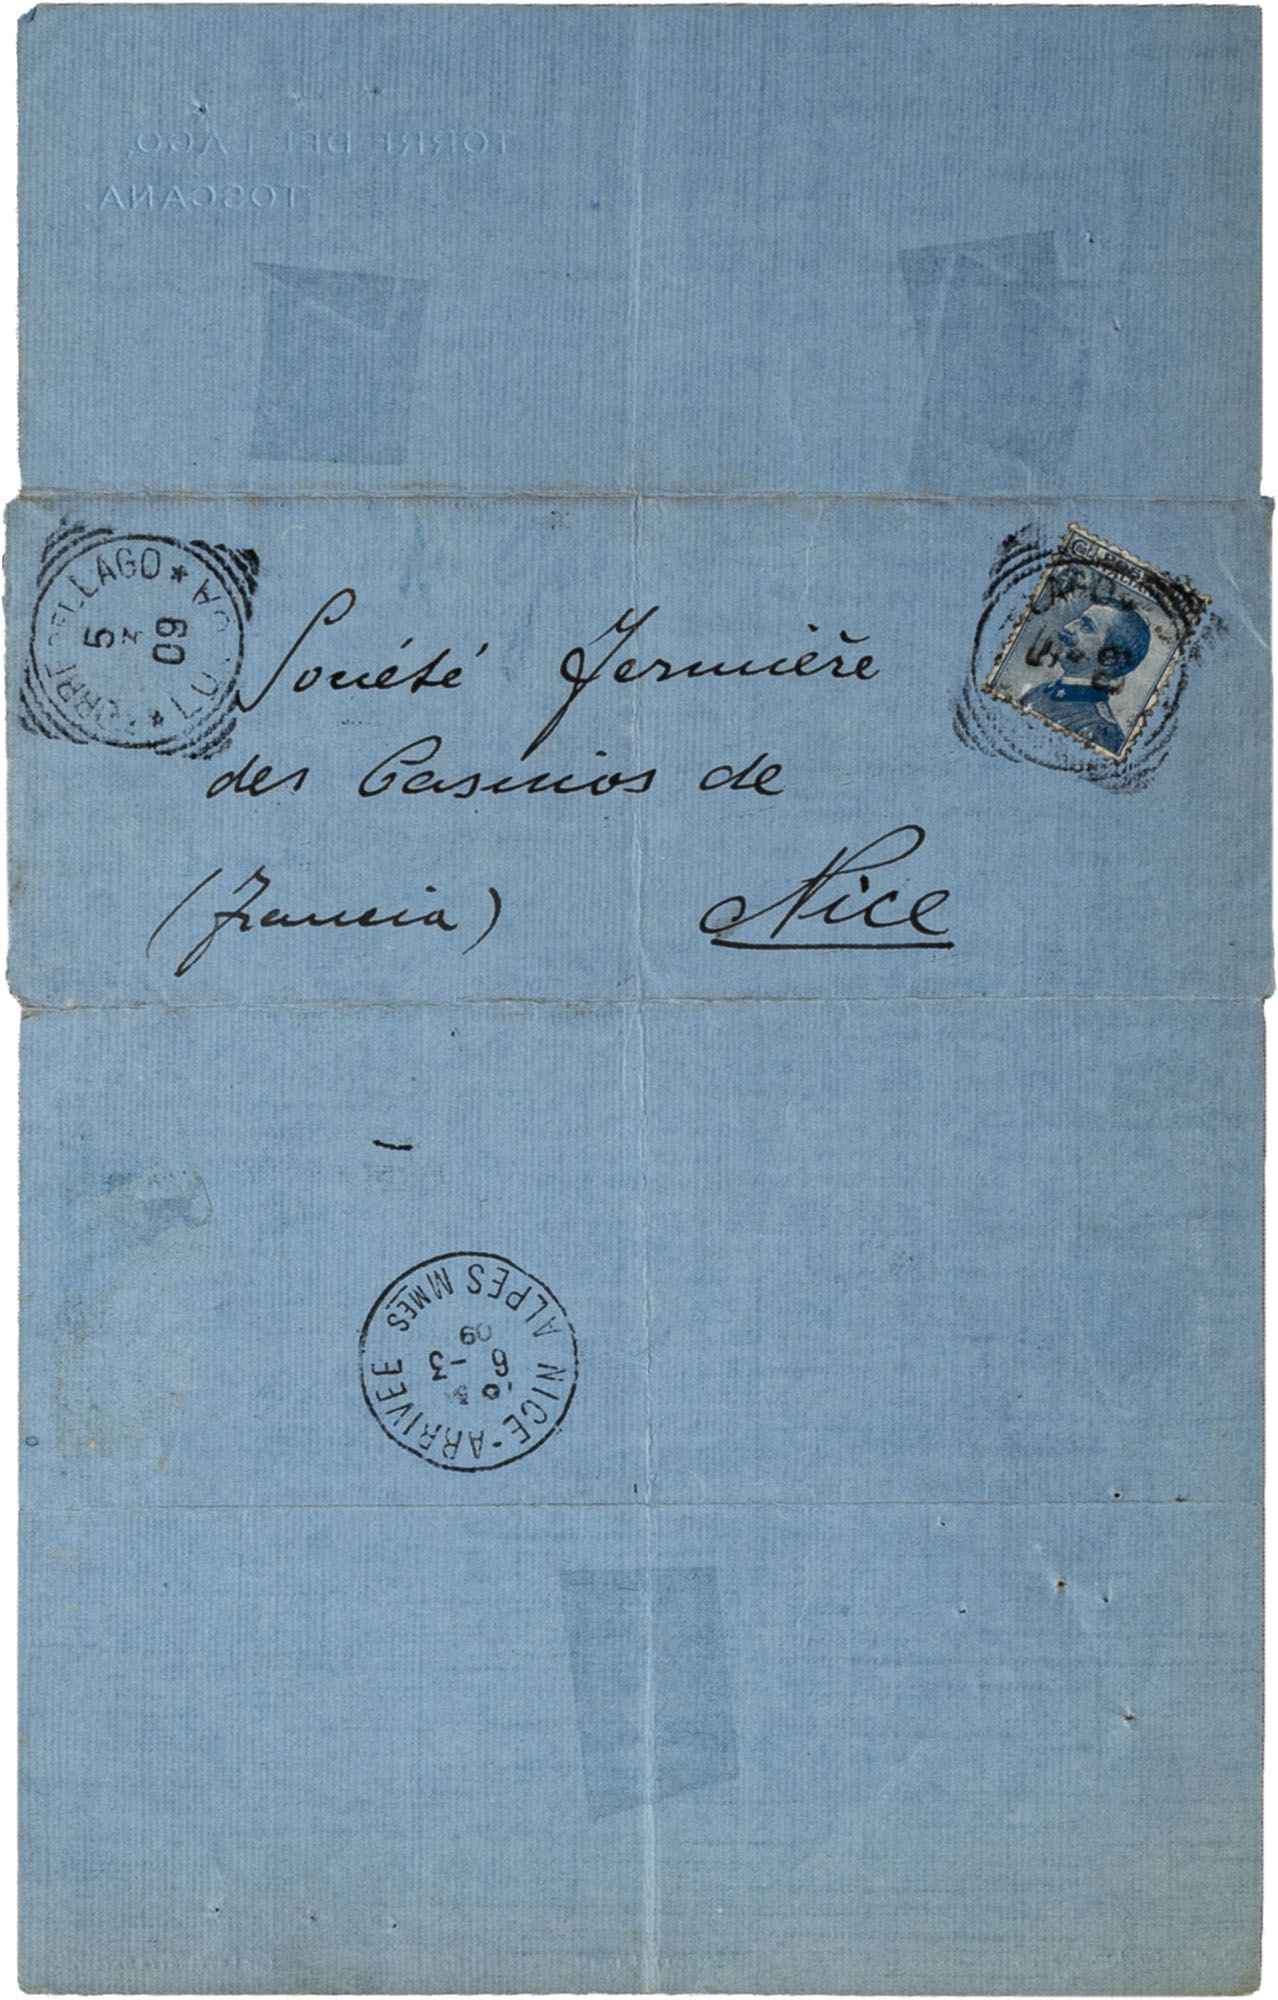 TORRE DEL LAGO,
TOSCANA.
TORRE DEL LAGO * LUCCA *
5
3
09
POSTE ITALIANE
Société Fermière
des Casinios de
(Francia) Nice
NICE-ARRIVEE
ALPES MMES
6 -3
09